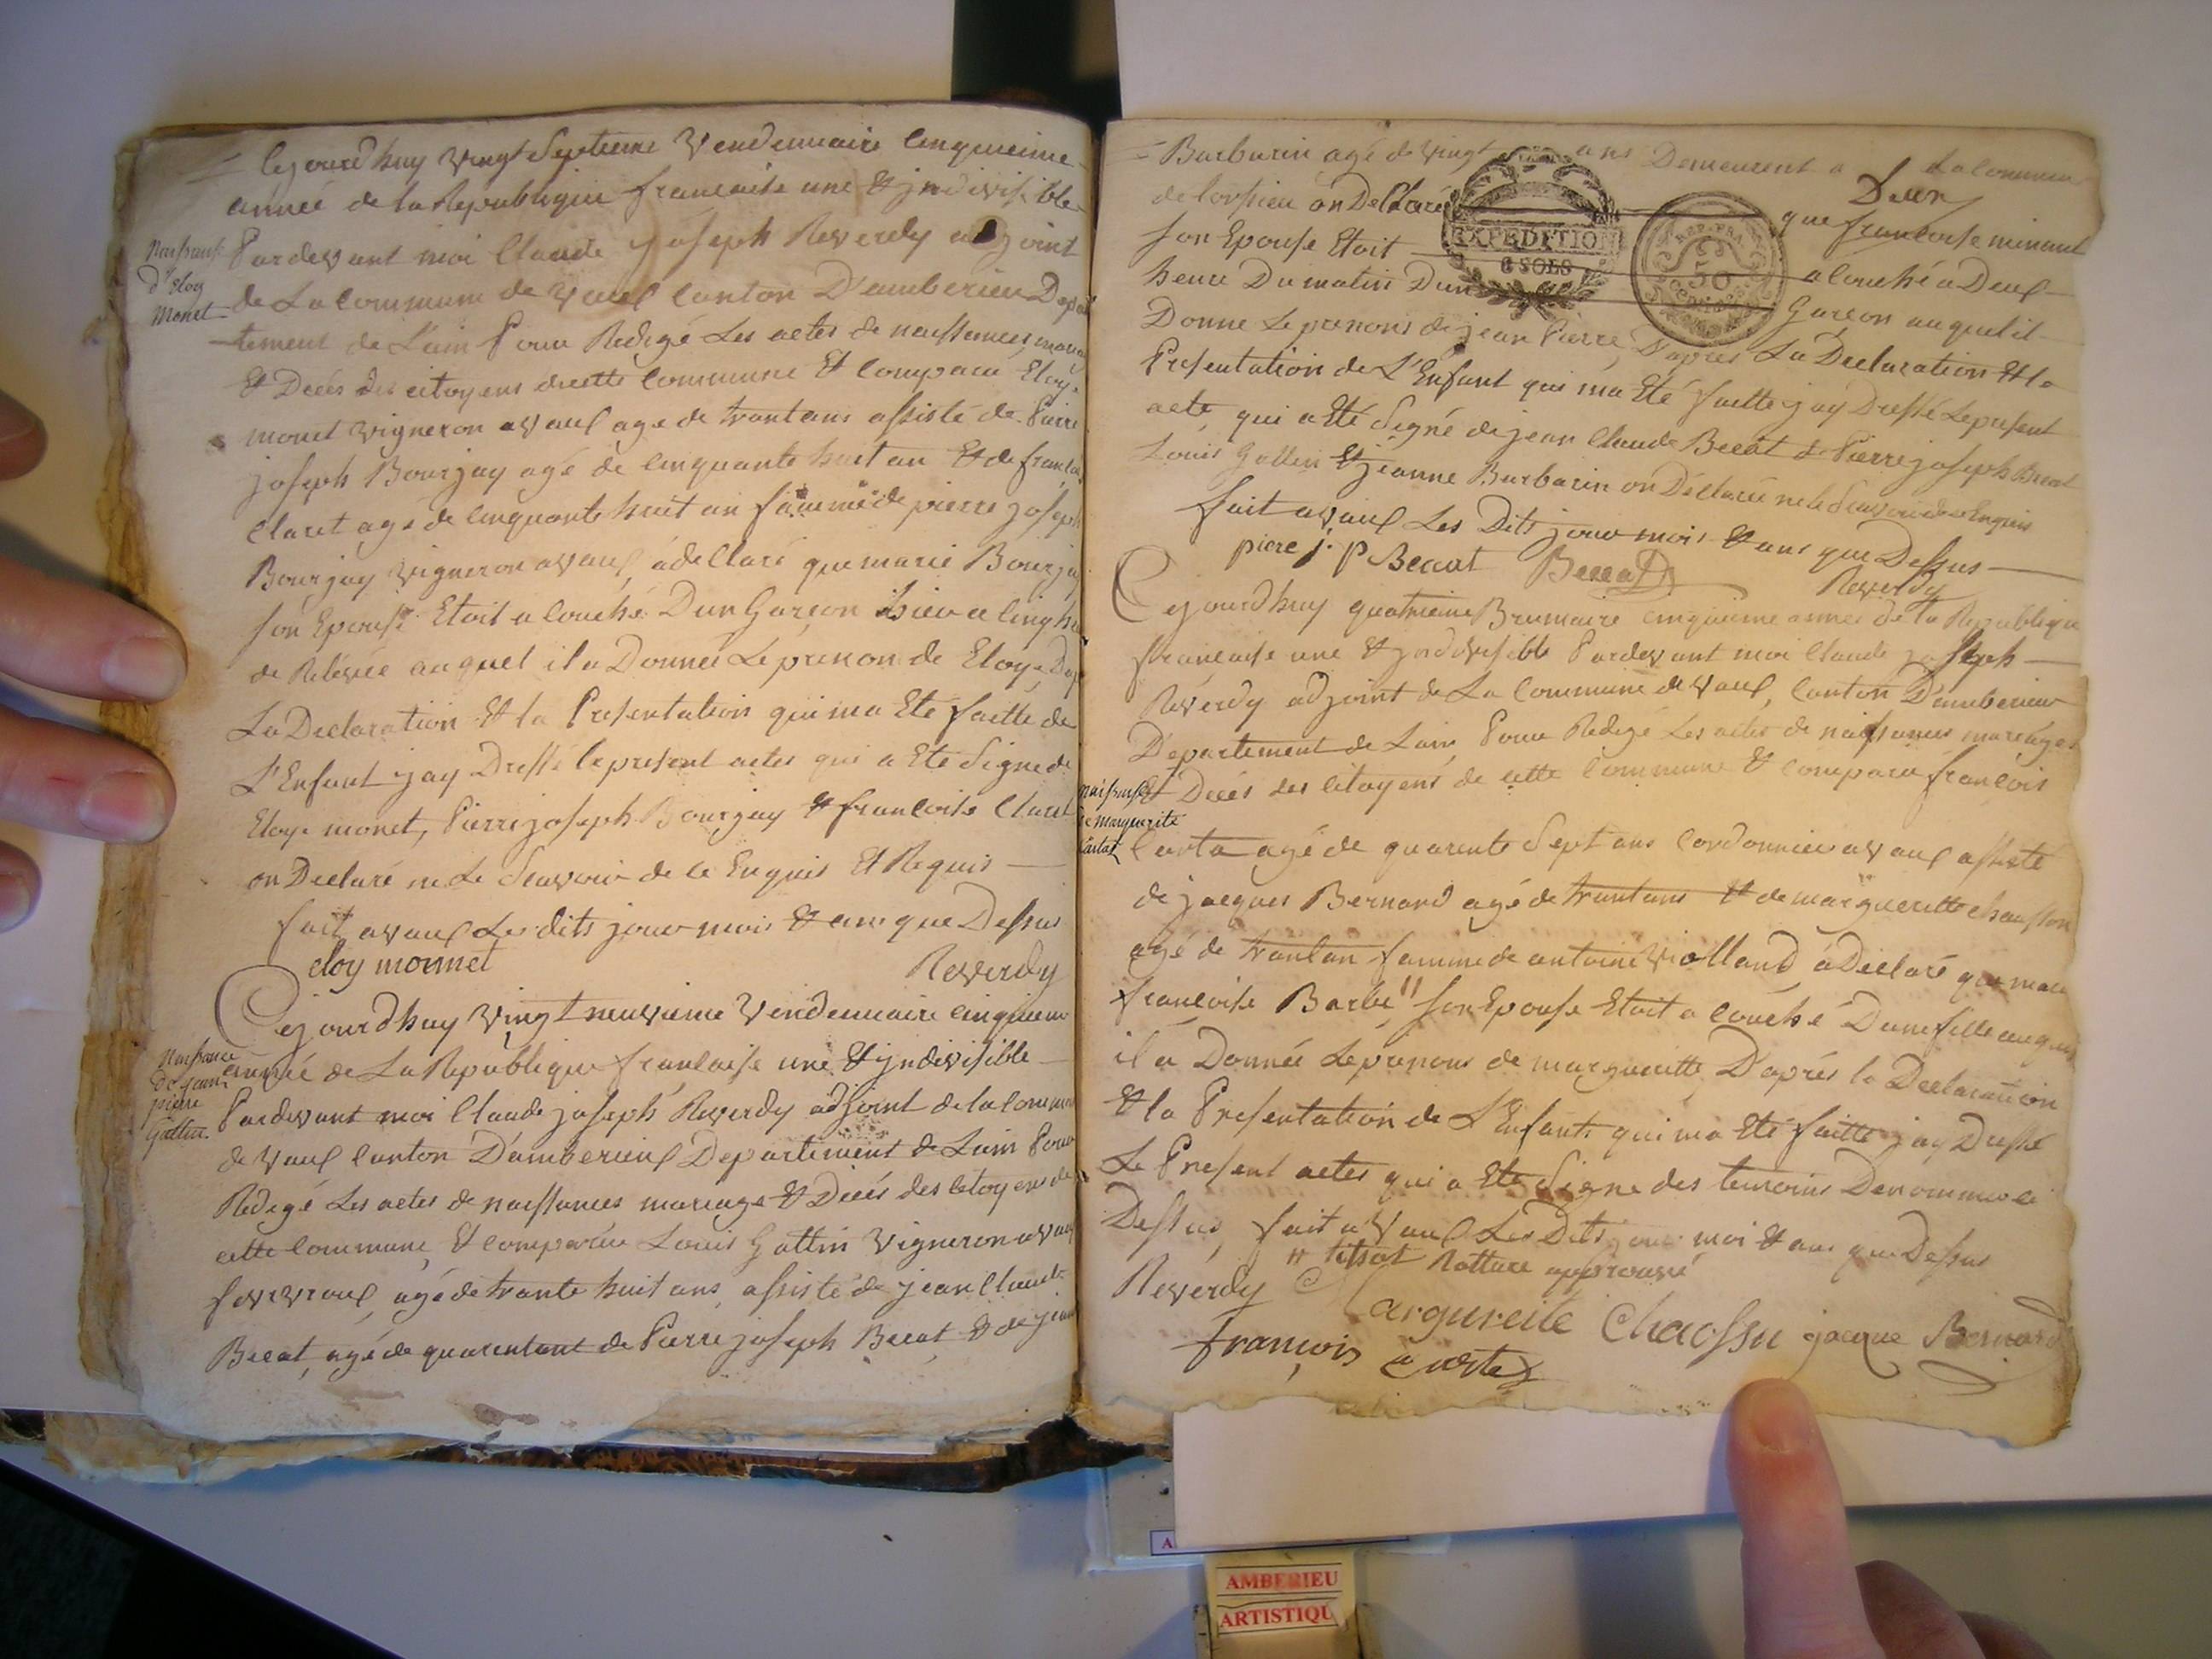 Cejourd'huy vingt Septieme Vendemiaire Cinquieme
année de la Republique francaise une & jndivisible
Naissance
d'Eloy
Monet
Pardevant moi Claude joseph Reverdy adjoint
de La Commune de Vaux Canton D'amberieu Depar
tement de L'ain Pour Redigé Les actes de naissances, maria
& Decés des citoyens de cette Commune & Comparu Eloy
monet vigneron a Vaux age de trantans assisté de Pierre
joseph Bourjay agé de Cinquante huit an & de francoi
Claret agé de Cinquante huit an famme de pierre joseph
Bourjay vigneron a Vaux, a declaré que marie Bourjay
son Epouse Etoit acouché D'un Garçon hier a Cinq heu
de Relevée auquel il a Donnée Le prenon de Eloy, D'ap
La Declaration & la Presentation qui ma Eté faitte de
L'Enfant jay Dressé le present actes qui a Eté Signé de
Eloy monet, Pierre joseph Bourjay & francoise Claret
on Declaré ne Le Scavoir de ce Enquis Et Requis
fait a Vaux Les dits jour mois & ans que Dessus
eloy monnet Reverdy
Cejourd'huy Vingt neuvieme Vendemiaire Cinquieme
Naissance
de jean
pierre
Gottin.
année de La Republique francaise une & jndivisible
Pardevant moi Claude joseph Reverdy adjoint de la Commune
de Vaux Canton D'amberieux Departement de Lain Pour
Redigé Les actes de naissances mariage & Decés des Citoyens de
cette Commune, & comparu Louis Gottin Vigneron a Vaux
agé de trante huit ans, assisté de jean Claude
Becat, agé de quarentans de Pierre joseph Becat & de jean
Barbarin agé de Vingt ans Demeurent a La Commune
de on Declaré
Deux
que francoise minant
EXPEDITION
6 SOLS
REP. FRA.
50
CENTIMES
son Epouse Etoit acouché a Deux
heure Du matin D'un Garçon auquel il
Donne Le prenons de jean Pierre, D'apres La Declaration & la
Presentation de L'Enfant qui ma Eté faitte jay Dressé Le present
acte, qui a Eté Signé de jean Claude Becat & Pierre joseph Becat
Louis Gottin & jeanne Barbarin on Declaré ne le Scavoir de ce Enquis
fait a Vaux Les Dits jour mois & ans que Dessus
piere j. p Becaut Becat Reverdy
Cejourd'huy quatrieme Brumaire Cinquieme année de la Republique
francaise une & jndivisible Pardevant moi Claude joseph
Reverdy adjoint de La Commune de Vaux, Canton D'amberieu
Departement de Lain, Pour Redigé Les actes de naissances mareages
Naissance
de marguerite
Cartat
& Decés des Citoyens de cette Commune & comparu francois
Carta agé de quarente Sept ans Cordonnier a Vaux assisté
de jacques Bernard agé de trantans & de margueritte chausson
agé de trantan famme de antoine Violland, a Declaré que marie
francoise Barbe" son Epouse Etoit acouché D'une fille auquel
il a Donnée Le prenons de margueritte, D'aprés la Declaration
& la Presentation de L'Enfant qui ma Eté faitte jay Dressé
Le Present actes qui a Eté Signé des temoins Denommés ci
Dessus, fait a Vaux Les Dits jour moi & ans que Dessus
" Rature approuvé
Reverdy Margureite Chaossu jacque Bernard
François